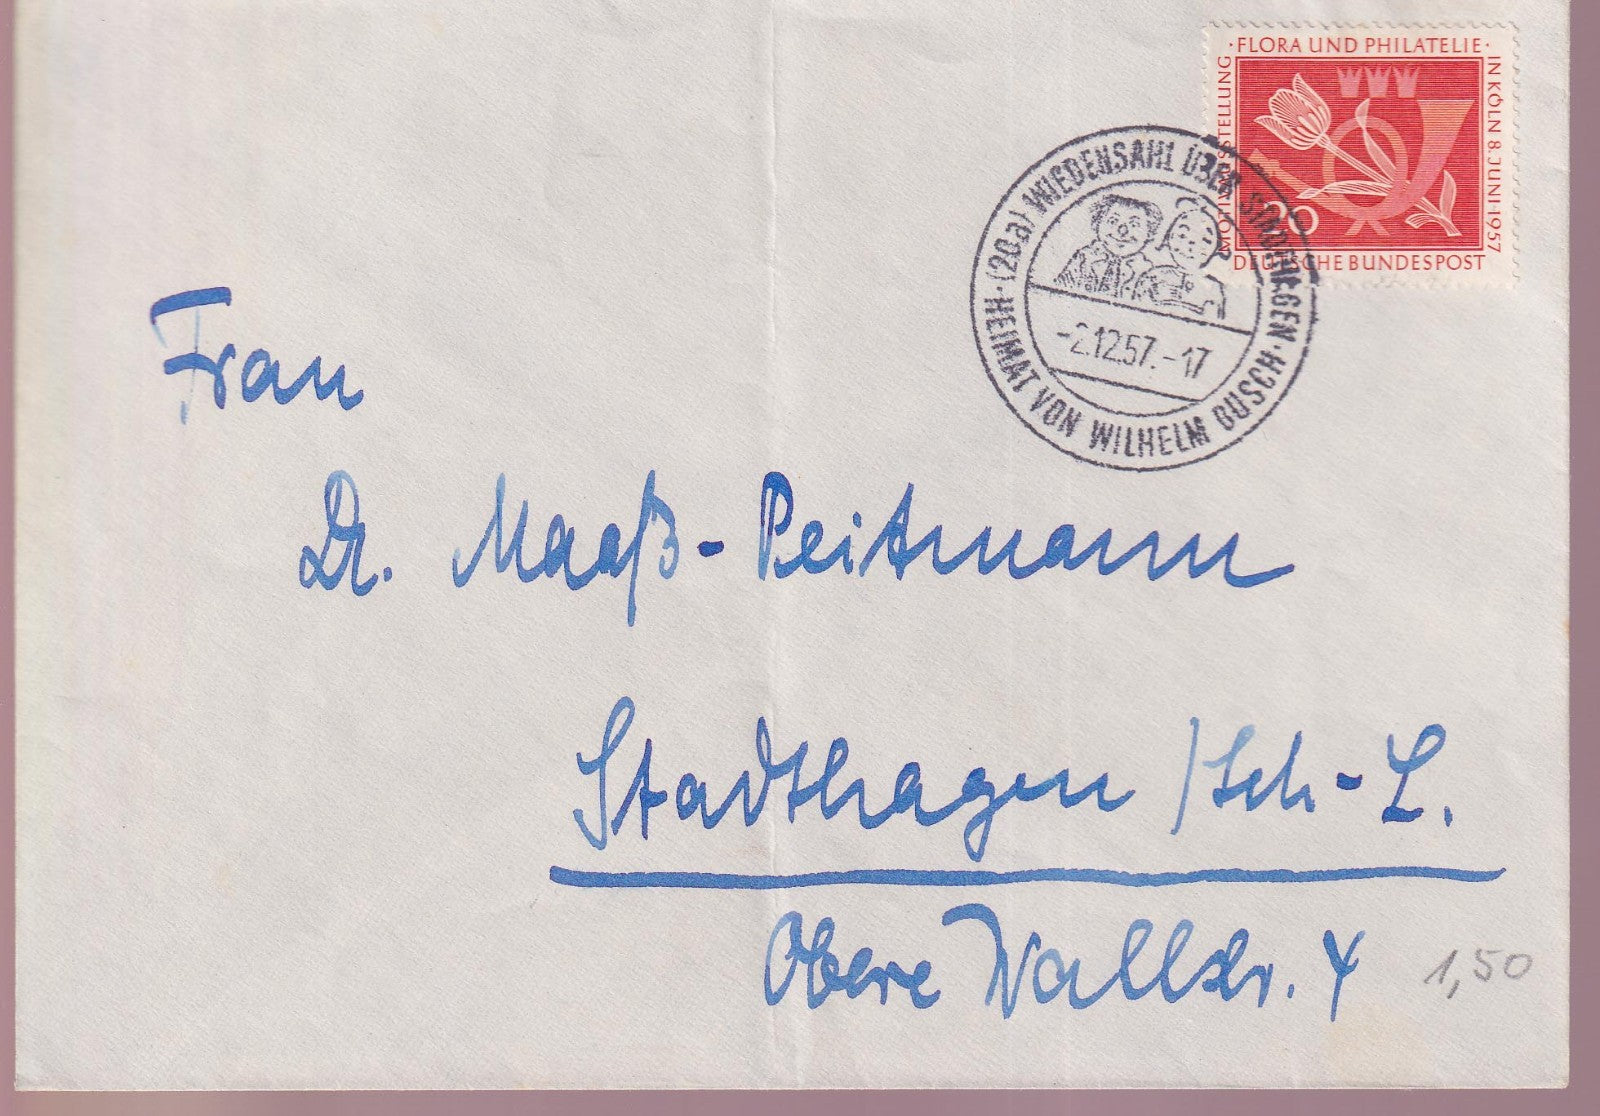 · FLORA UND PHILATELIE ·
IN KÖLN 8. JUNI 1957
20
DEUTSCHE BUNDESPOST
· (20a) WIEDENSAHL ÜBER STADTHAGEN ·
-2.12.57.-17
HEIMAT VON WILHELM BUSCH
Frau
Dr. Maaß-Peitmann
Stadthagen / Sch.-L.
Obere Wallstr. 4
1,50